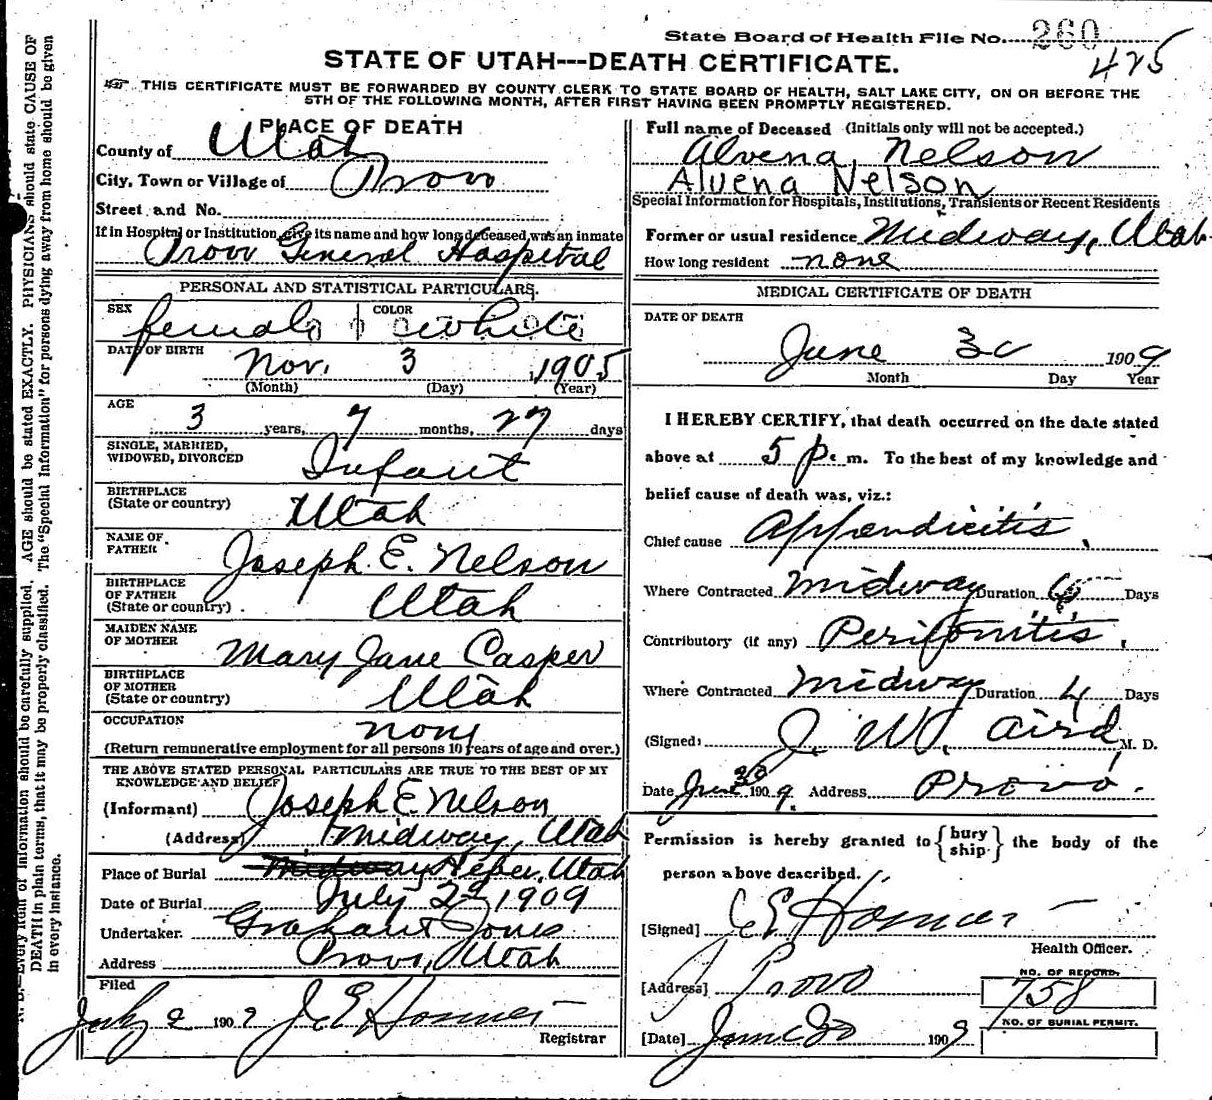 State Board of Health File No. 260
425
STATE OF UTAH---DEATH CERTIFICATE.
THIS CERTIFICATE MUST BE FORWARDED BY COUNTY CLERK TO STATE BOARD OF HEALTH, SALT LAKE CITY, ON OR BEFORE THE
5TH OF THE FOLLOWING MONTH, AFTER FIRST HAVING BEEN PROMPTLY REGISTERED.
PLACE OF DEATH
County of Utah
City, Town or Village of Provo
Street and No.
If in Hospital or Institution, give its name and how long deceased was an inmate
Provo General Hospital
PERSONAL AND STATISTICAL PARTICULARS.
SEX female COLOR white
DATE OF BIRTH Nov. 3 1905
(Month) (Day) (Year)
AGE
3 years, 7 months, 27 days
SINGLE, MARRIED,
WIDOWED, DIVORCED Infant
BIRTHPLACE
(State or country) Utah
NAME OF
FATHER Joseph E. Nelson
BIRTHPLACE
OF FATHER
(State or country) Utah
MAIDEN NAME
OF MOTHER Mary Jane Casper
BIRTHPLACE
OF MOTHER
(State or country) Utah
OCCUPATION none
(Return remunerative employment for all persons 10 years of age and over.)
THE ABOVE STATED PERSONAL PARTICULARS ARE TRUE TO THE BEST OF MY
KNOWLEDGE AND BELIEF
(Informant) Joseph E Nelson
(Address) Midway, Utah
Place of Burial Midway Heber, Utah
Date of Burial July 2d 1909
Undertaker. Graham Jones
Address Provo, Utah
Filed
July 2 1909 J E Hosmer
Registrar
Full name of Deceased (Initials only will not be accepted.)
Alvena Nelson
Alvena Nelson
Special Information for Hospitals, Institutions, Transients or Recent Residents
Former or usual residence Midway, Utah
How long resident none
MEDICAL CERTIFICATE OF DEATH
DATE OF DEATH
June 30 1909
Month Day Year
I HEREBY CERTIFY, that death occurred on the date stated
above at 5 p. m. To the best of my knowledge and
belief cause of death was, viz.:
Chief cause Appendicitis.
Where Contracted Midway Duration 6 Days
Contributory (if any) Peritonitis.
Where Contracted Midway Duration 4 Days
(Signed) J. W. Aird, M. D.
Date June 30 1909. Address Provo.
Permission is hereby granted to {bury ship} the body of the
person above described.
[Signed] J E Hosmer
Health Officer.
[Address] Provo
NO. OF RECORD.
758
NO. OF BURIAL PERMIT.
[Date] June 30 1909
N. B.—Every item of information should be carefully supplied. AGE should be stated EXACTLY. PHYSICIANS should state CAUSE OF
DEATH in plain terms, that it may be properly classified. The "Special Information" for persons dying away from home should be given
in every instance.